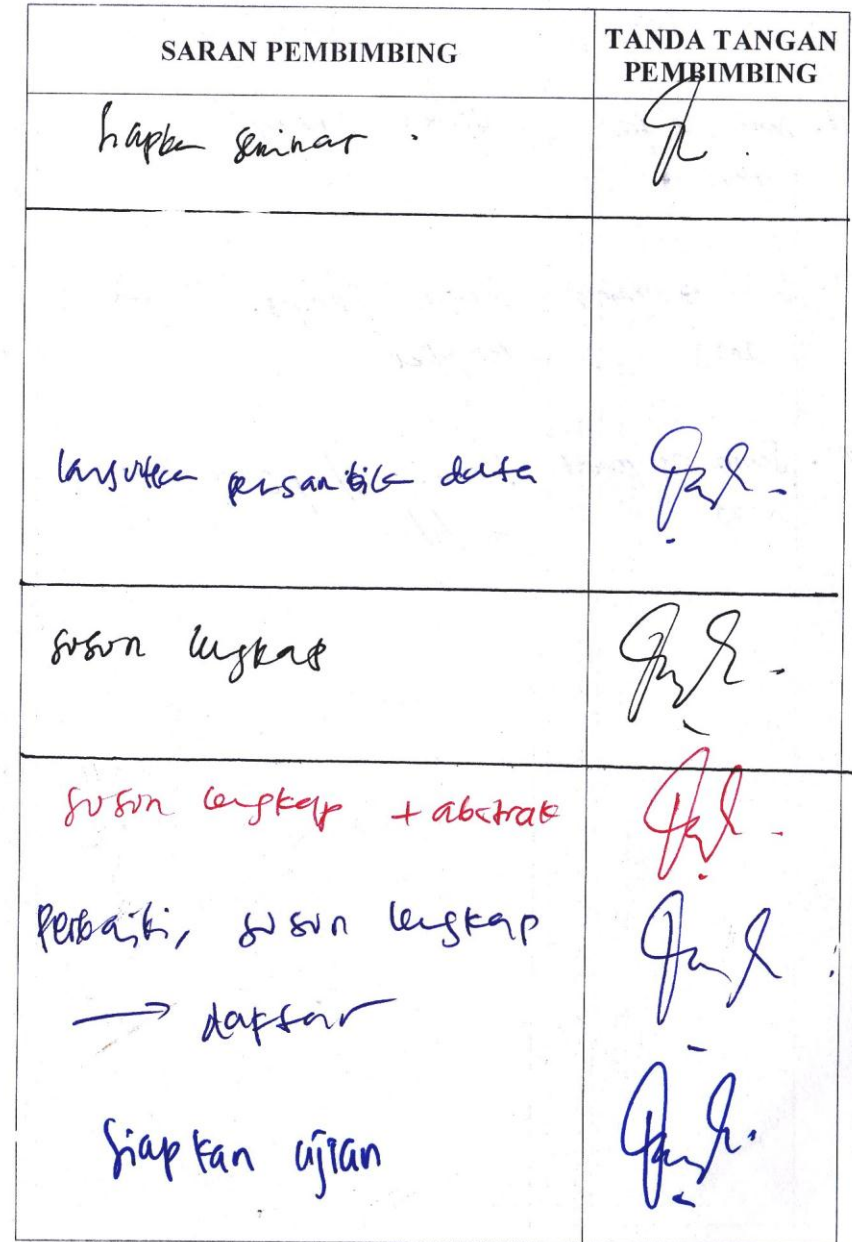 SARAN PEMBIMBING
TANDA TANGAN
PEMBIMBING
Siapkan seminar .
lanjutkan data
susun lengkap
susun lengkap + abstrak
Perbaiki, susun lengkap
→ daftar
Siapkan ujian